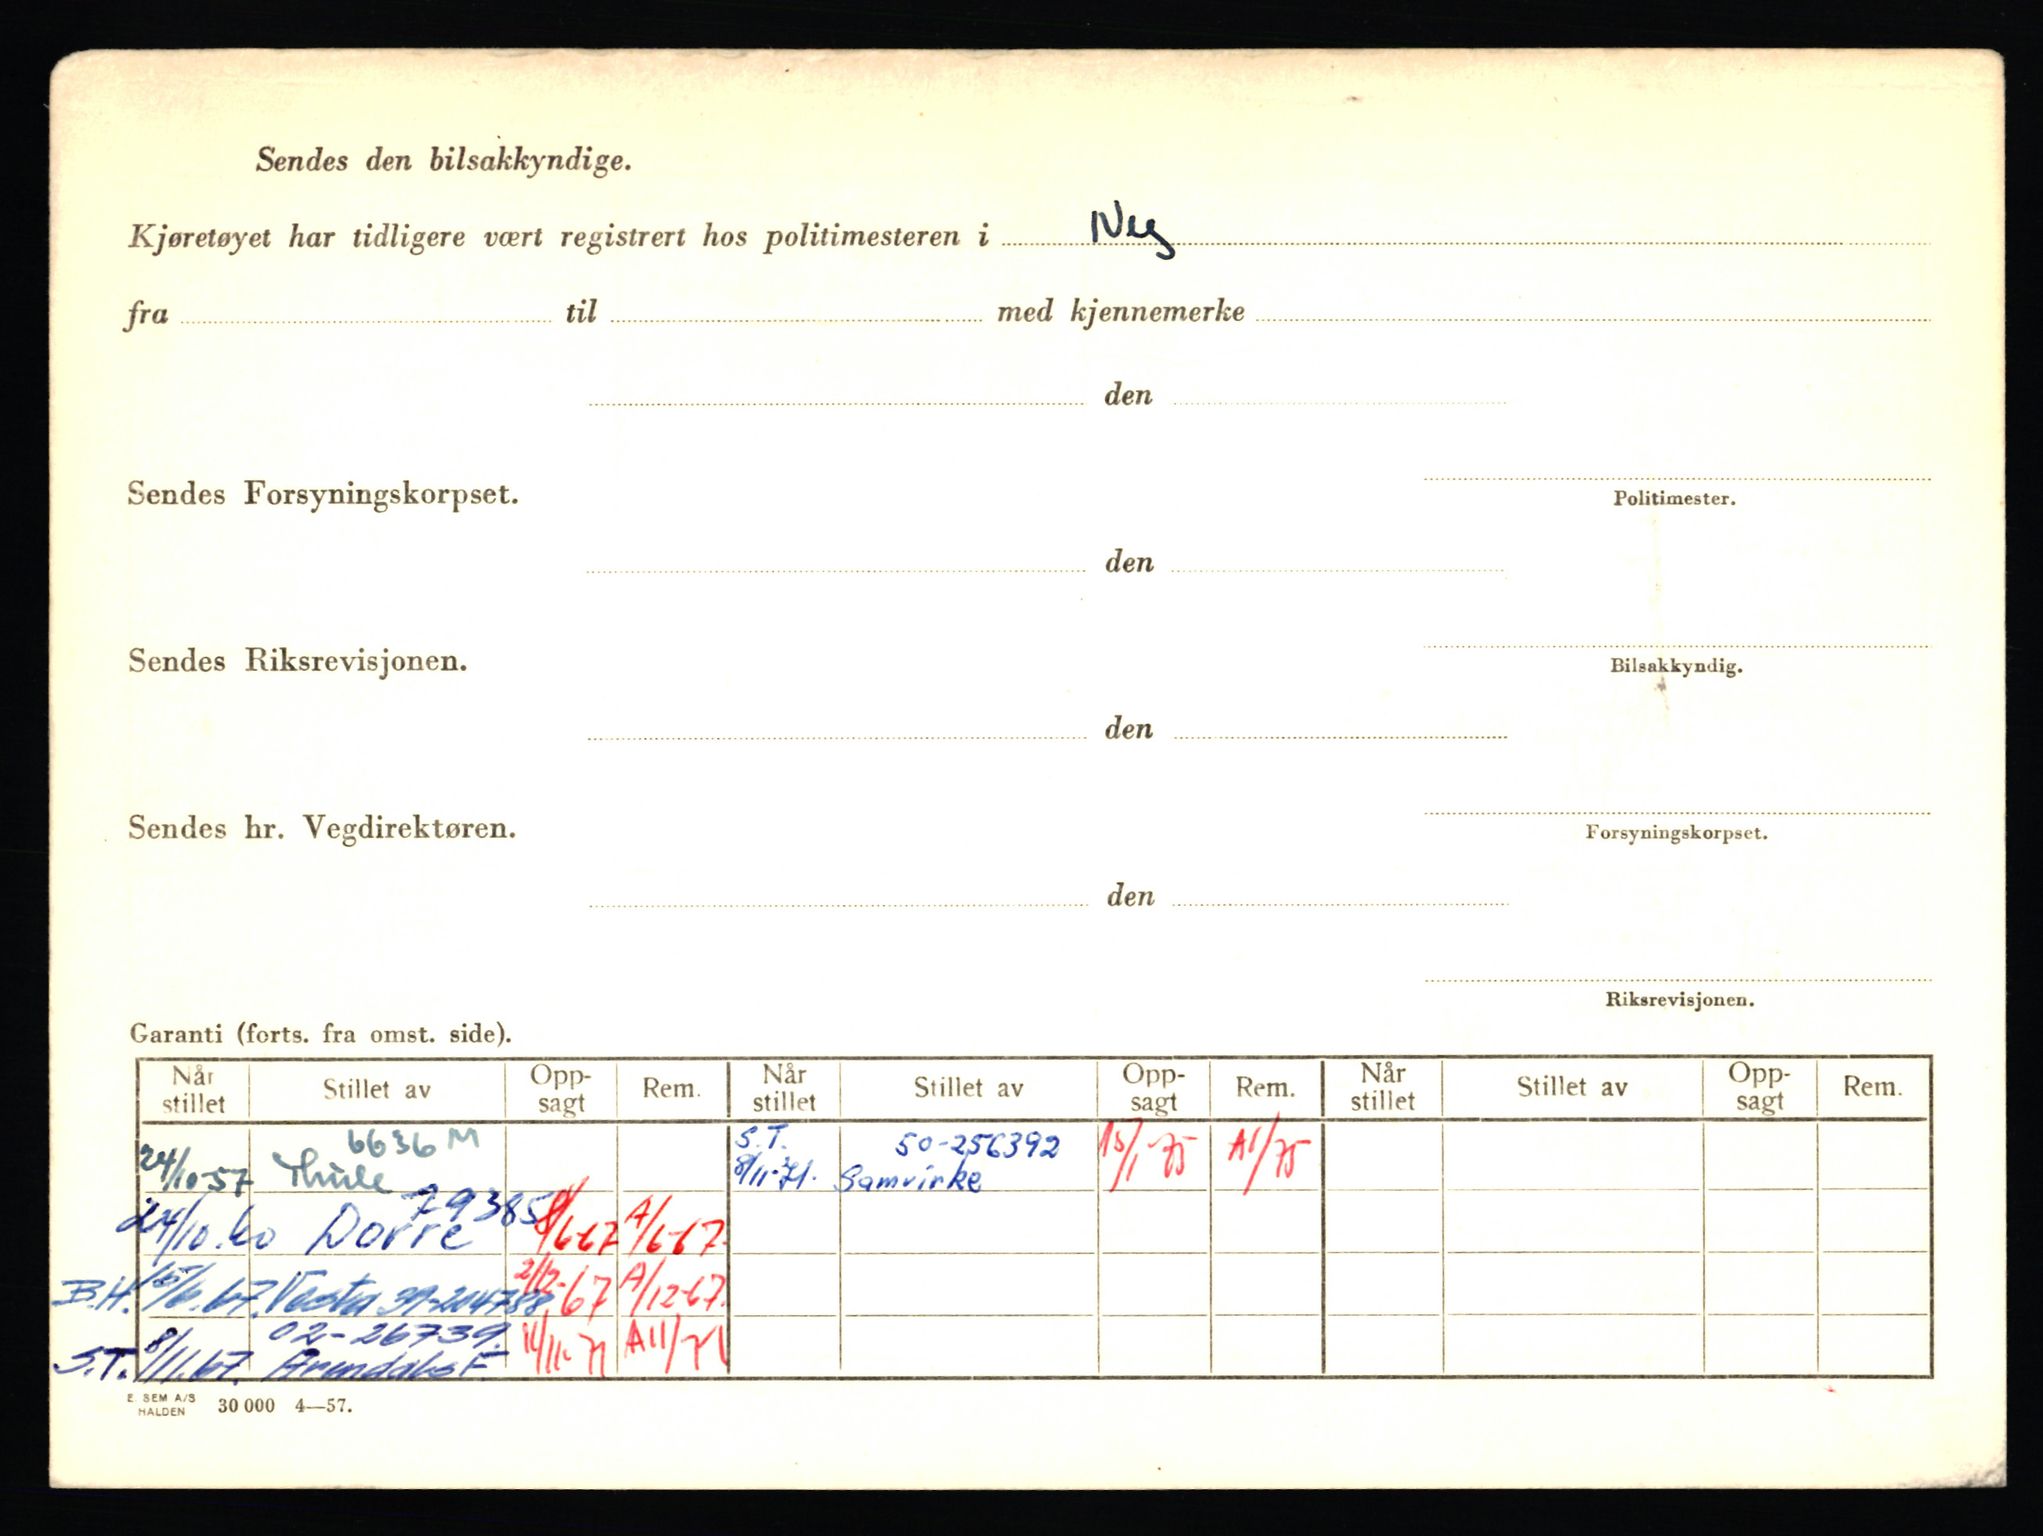 Sendes den bilsakkyndige.
Kjøretøyet har tidligere vært registrert hos politimesteren i Neg
fra til med kjennemerke
den
Sendes Forsyningskorpset.
Politimester.
den
Sendes Riksrevisjonen.
Bilsakkyndig.
den
Sendes hr. Vegdirektøren.
Forsyningskorpset.
den
Riksrevisjonen.
Garanti (forts. fra omst. side).
Når stillet Stillet av Opp-sagt Rem. Når stillet Stillet av Opp-sagt Rem. Når stillet Stillet av Opp-sagt Rem.
6636 M S.T. 50-256392 15/1-75 A1/75
24/10-57 Thule 8/11-71. Samvirke
79385
24/10.60 Dovre 8/6-67 A/6-67.
B.H. 15/6.67. Vesta 39-204788 2/12-67 A/12-67.
02-26739.
S.T. 8/11.67. Arendals F. 11/11-71 A11/71
E. SEM A/S
HALDEN 30 000 4—57.